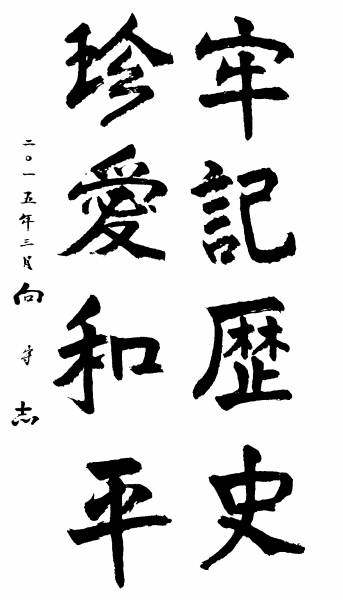 牢記歷史
珍愛和平
二〇一五年三月 向守志